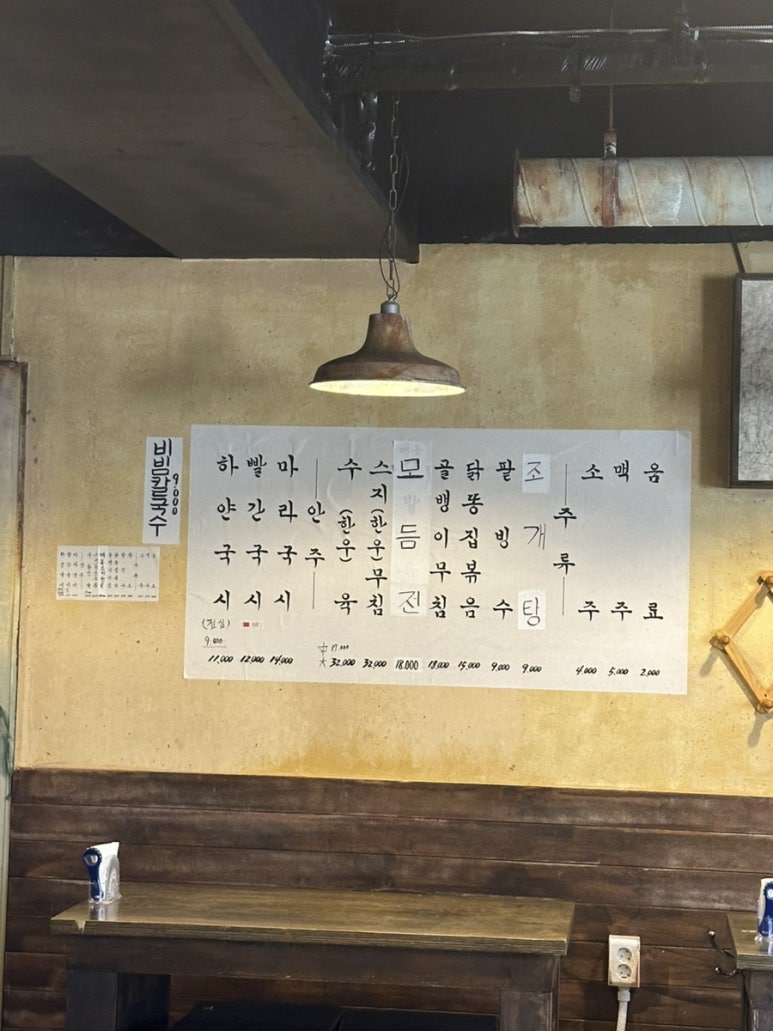 비빔칼국수 9.000
하얀국시 (점심) 9.000 11,000
빨간국시 12,000
마라국시 14,000
안주
수(한우)육 中 17.000 大 32,000
스지(한우)무침 32,000
모듬전 18.000
골뱅이무침 18,000
닭똥집볶음 15,000
팥빙수 9,000
조개탕 9,000
주류
소주 4,000
맥주 5,000
음료 2,000